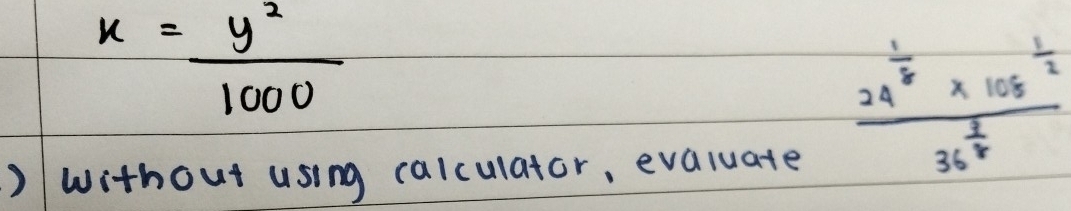 x = y²
1000
.) without using calculator, evaluate 24^(1/8) x 108^(1/2)
36^(3/8)